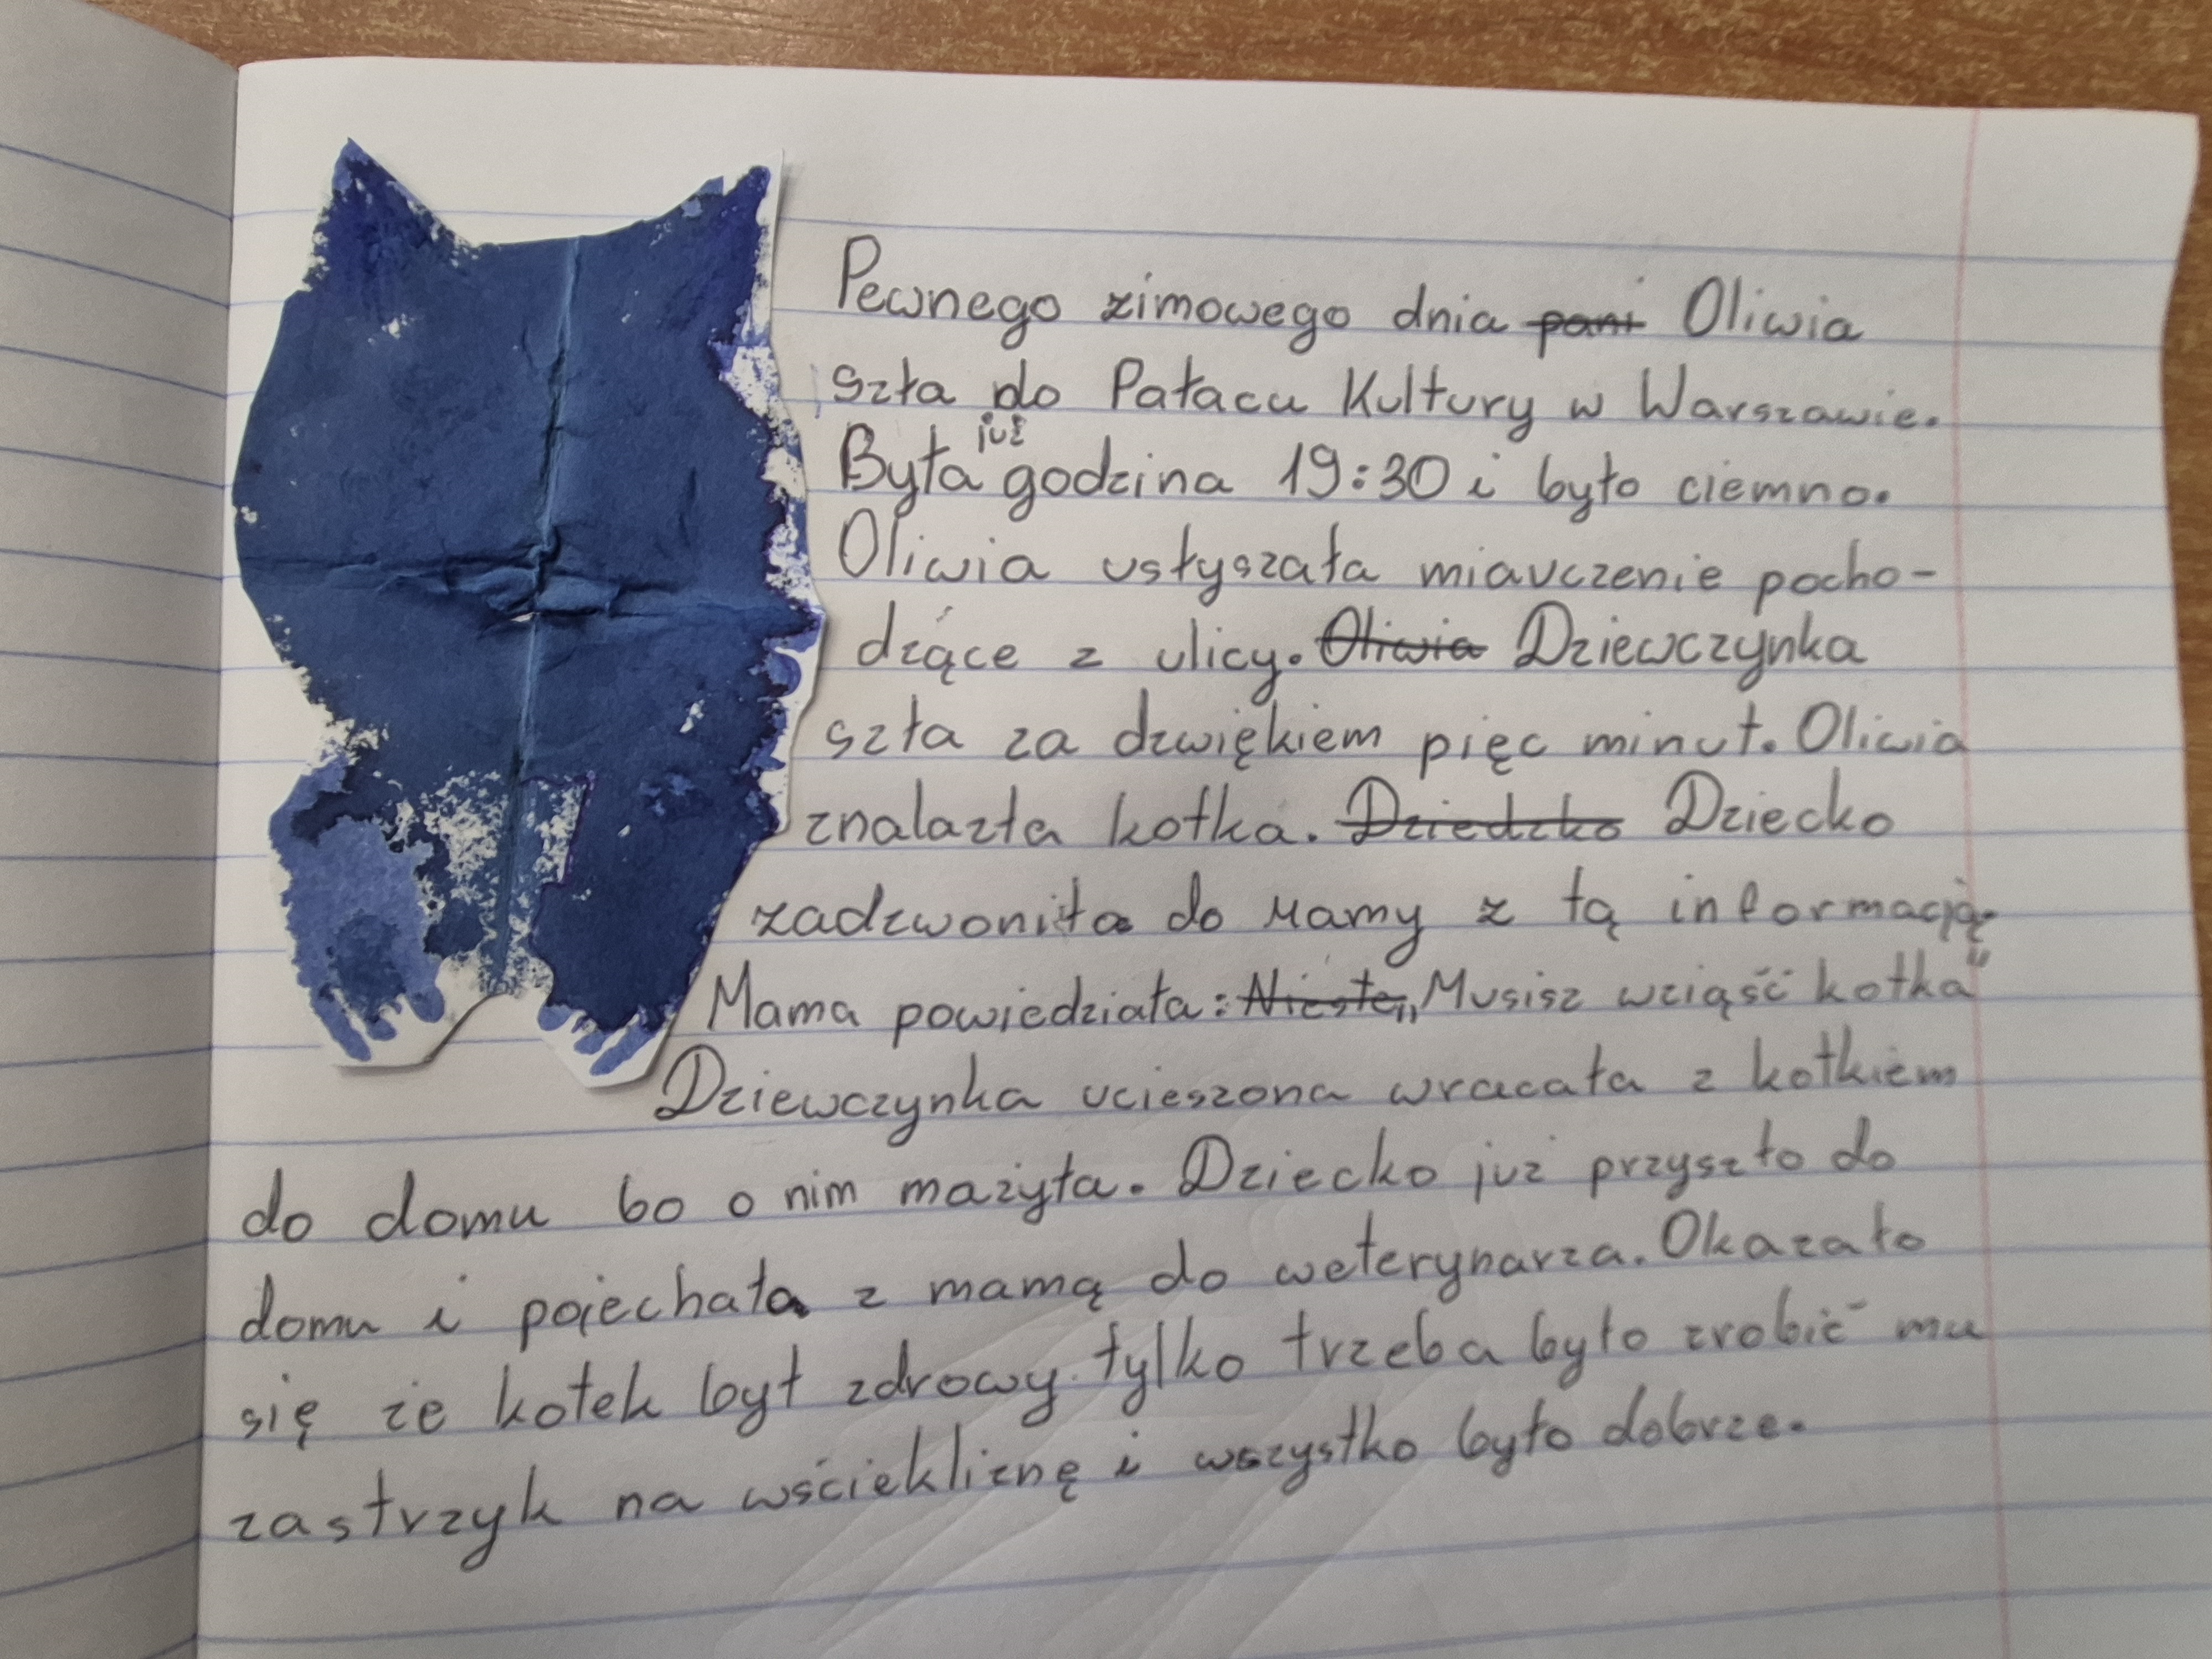 Pewnego zimowego dnia pani Oliwia
szła do Pałacu Kultury w Warszawie.
Była już godzina 19:30 i było ciemno.
Oliwia usłyszała miauczenie pocho-
dzące z ulicy. Oliwia Dziewczynka
szła za dzwiękiem pięc minut. Oliwia
znalazła kotka. Dziedzko Dziecko
zadzwoniła do Mamy z tą informacją.
Mama powiedziała: „Musisz wziąść kotka"
Dziewczynka ucieszona wracała z kotkiem
do domu bo o nim mażyła. Dziecko już przyszło do
domu i pojechała z mamą do weterynarza. Okazało
się że kotek był zdrowy tylko trzeba było zrobić mu
zastrzyk na wściekliznę i wszystko było dobrze.